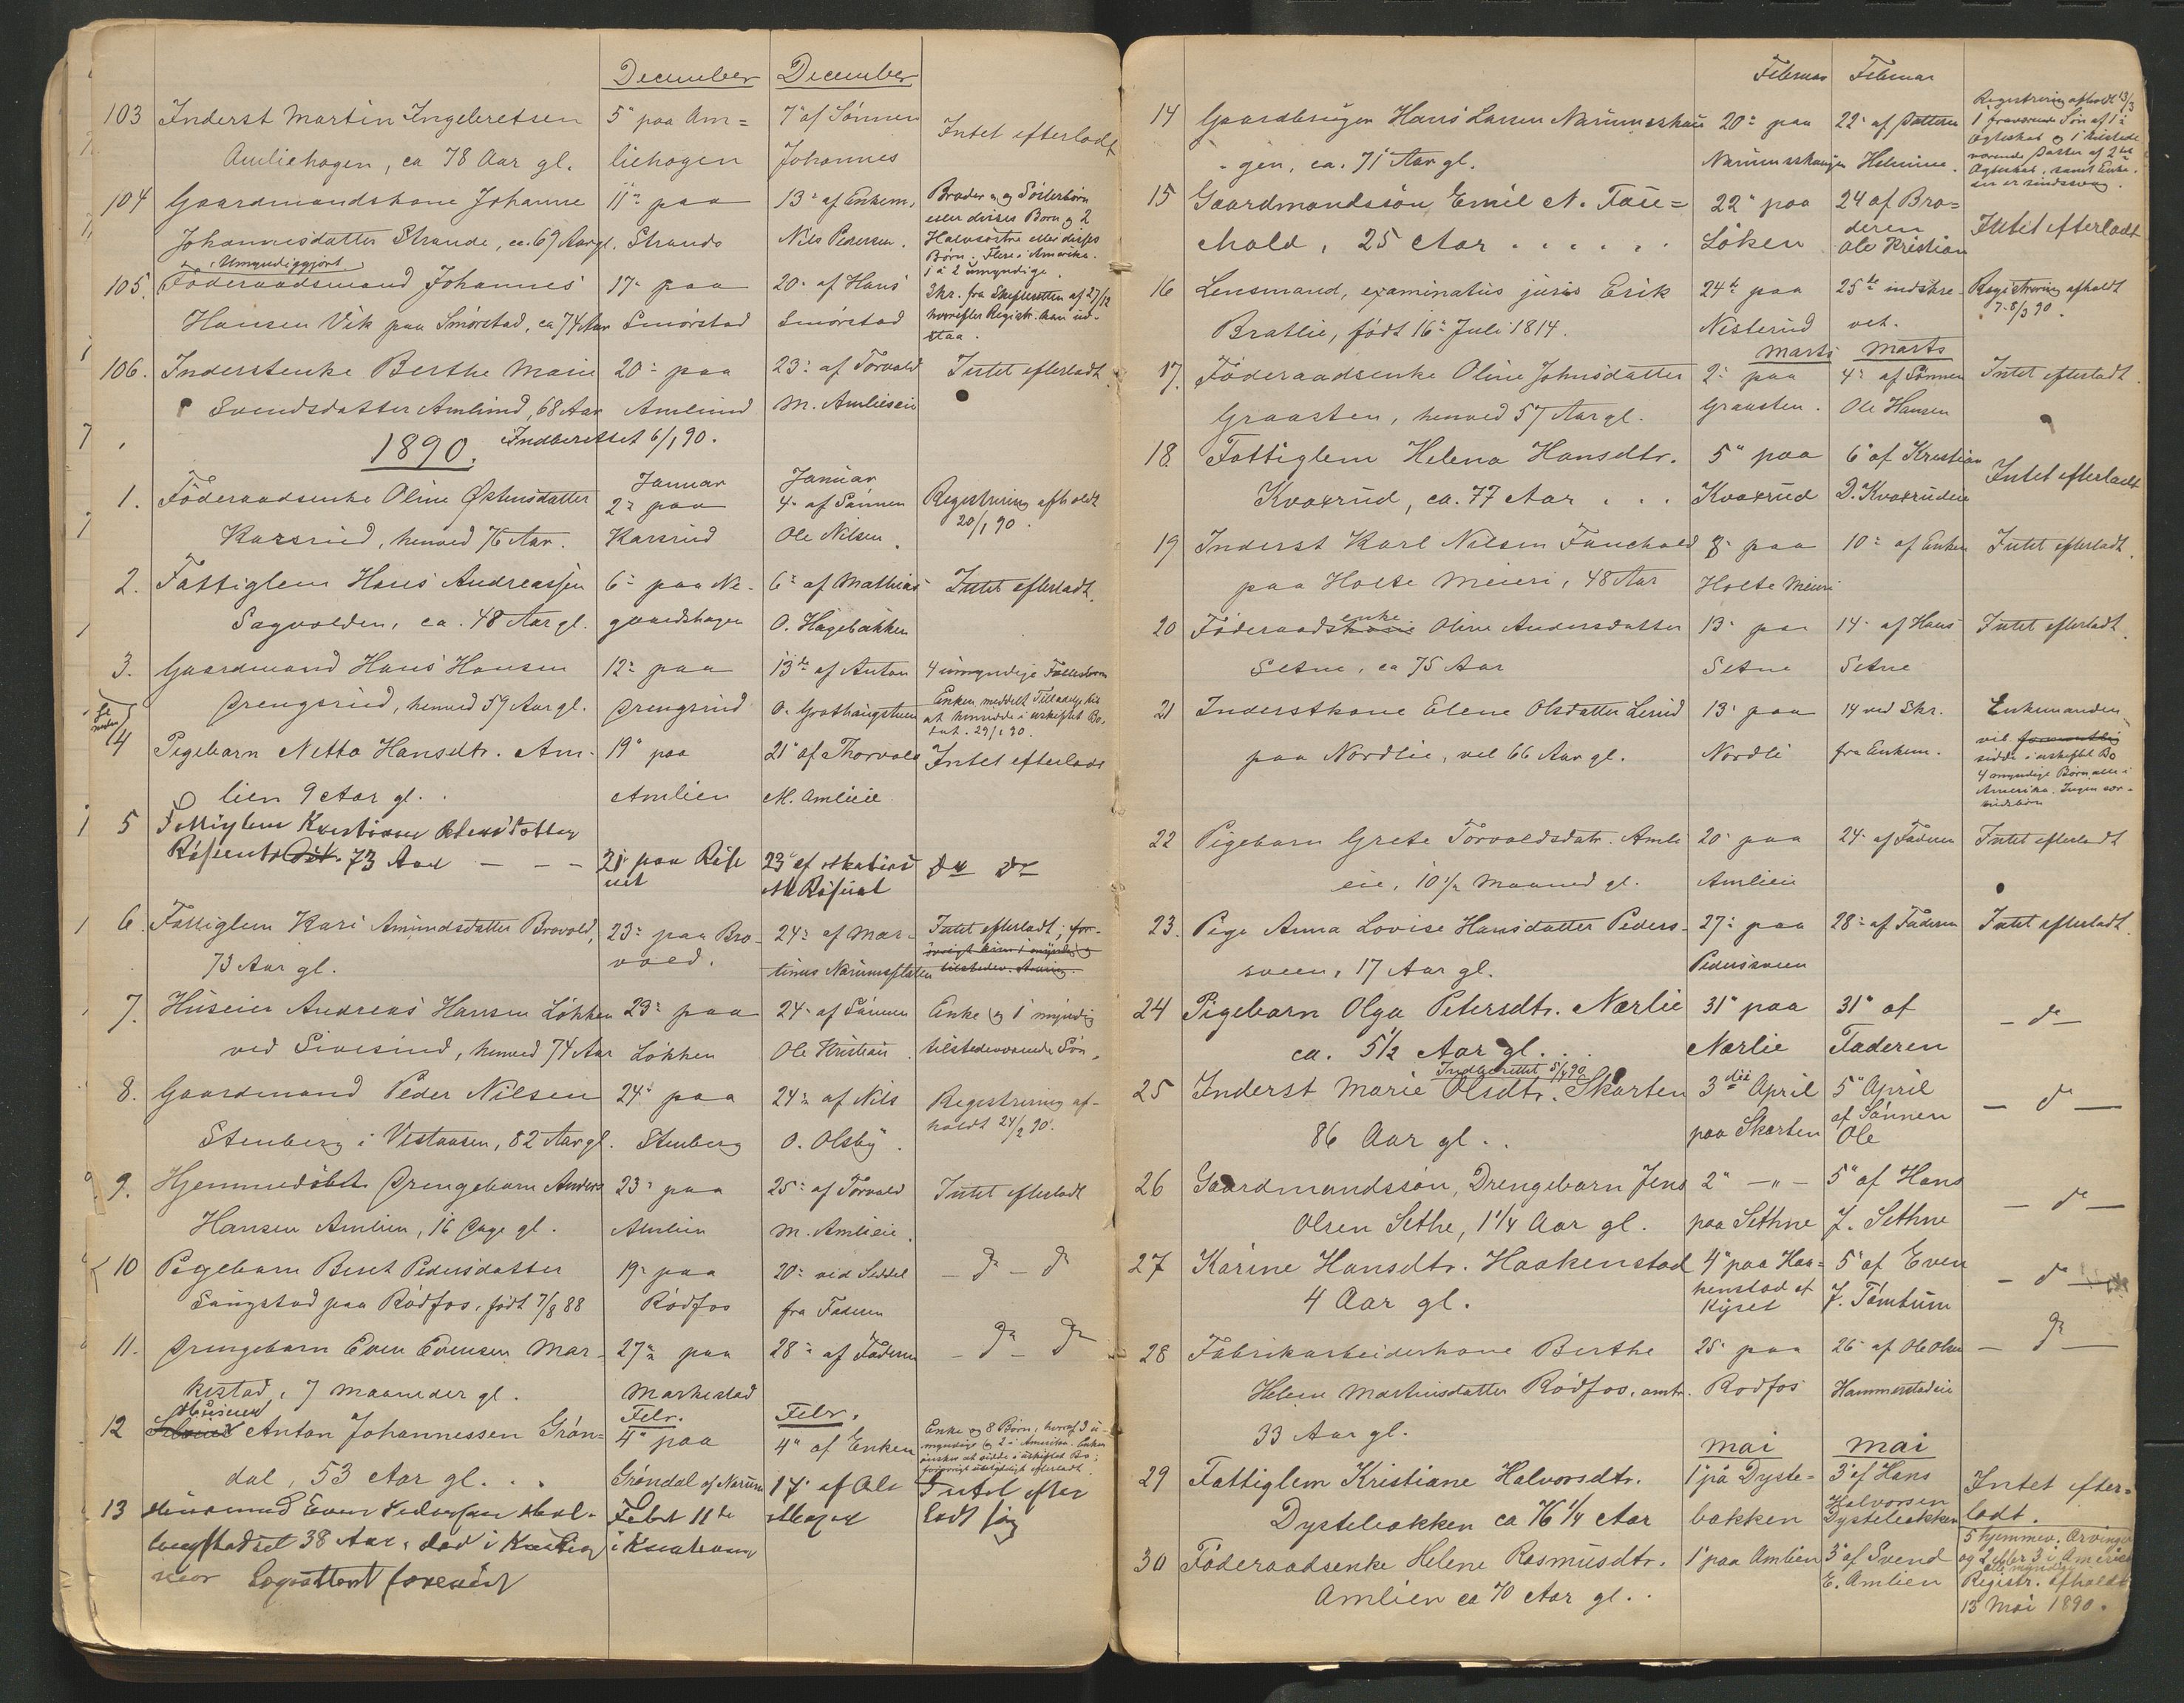 December December
103 Inderst Martin Ingebretsen 5" paa Am= 7" af Sønnen Intet efterladt
Amliehagen, ca 78 Aar gl. liehagen Johannes
104 Gaardmandskone Johanne 11" paa 13" af Enkem. Brødre og Søsterbørn
eller disses Børn og 2
Johannesdatter Strande, ca. 69 Aar gl. Strande Nils Pedersen. Halvsøstre eller disses
Børn. Flere i Amerika.
1 à 2 umyndige.
Umyndiggjort
105. Føderaadsmand Johannes 17" paa 20" af Hans Skr. fra Skifteretten af 27/12
hvorefter Registr. kan ud-
Hansen Vik paa Smørstad, ca 74 Aar Smørstad Smørstad staa.
106. Inderstenke Berthe Marie 20" paa 23" af Torvald Intet efterladt
Svendsdatter Amlund, 68 Aar Amlund M. Amlieeie
1890. Indberettet 6/1 90.
Januar Januar
1. Føderaadsenke Oline Østensdatter 2" paa 4" af Sønnen Registrering afholdt
20/1 90.
Karsrud, henved 76 Aar. Karsrud Ole Nilsen.
2. Fattiglem Hans Andreassen 6" paa Ne- 6" af Mathias Intet efterladt.
Sagvolden, ca. 48 Aar gl. gaardshagen O. Hagebakken
3. Gaardmand Hans Hansen 12" paa 13de af Anton 4 umyndige Fællesbørn
Drengsrud, henved 59 Aar gl. Drengsrud O. Enken meddelt Tilladelse til
at hensidde i uskiftet Bo.
29/1 90.
4 Pigebarn Netta Hansdtr. Am- 19" paa 21" af Thorvald Intet efterladt
lien 9 Aar gl. Amlien M. Amlieie
5 Fattiglem Kristiane
73 Aar — — — 21" paa 23" af do do
6. Fattiglem Kari Amundsdatter Brovold, 23" paa Bro- 24" af Mar- Intet efterladt; for-
73 Aar gl. vold. tinus Narumsflaten
7. Huseier Andreas Hansen Løkken 23" paa 24" af Sønnen Enke og 1 myndig
ved Sivesind, henved 74 Aar Løkken Ole Kristian tilstedeværende Søn.
8. Gaardmand Peder Nilsen 24" paa 24" af Nils Registrering af-
holdt 24/2 90.
Stenberg i Vestaasen, 82 Aar gl. Stenberg O. Olsby.
9. Hjemmedøbt Drengebarn Anders 23" paa 25" af Torvald Intet efterladt
Hansen Amlien, 16 Dage gl. Amlien M. Amlieie.
10 Pigebarn Beret Pedersdatter 19" paa 20" ved Seddel — do — do
Saugstad paa Rødfos, født 7/8 88 Rødfos fra Faderen
11. Drengebarn Even Evensen Mar- 27" paa 28" af Faderen — do — do
kestad, 7 Maaneder gl. Markestad
Husmand Febr. Febr.
12 Anton Johannessen Grøn= 4" paa 4" af Enken Enke og 8 Børn, hvoraf 3 u-
myndige og 2 i Amerika. Enken
ønsker at sidde i uskiftet Bo;
dal, 53 Aar gl. . . Grøndal af Narum 17" af Ole Intet efter
13 Husmand Even Pedersen Febr 11te ladt sig
38 Aar, død i
Februar Februar
14 Gaardbruger Hans Larsen Narumshau 20" paa 22" af Datteren Registrering afholdt 13/3
1 fraværende Søn af 1"
Ægteskab og 1 tilstede
- gen, ca. 71 Aar gl. Narumshaugen Helmine. værende Datter af 2det
Ægteskab, samt Enke.
15 Gaardmandssøn Emil N. Fau= 22" paa 24 af Bro= Intet efterladt
deren
chald, 25 Aar . . . . . . Løken Ole Kristian
16 Lensmand, examinatus juris Erik 24de paa 25de indskre- Registrering afholdt
7-8/3 90.
Bratlie, født 16" Juli 1814. Nesterud vet.
Marts Marts
17. Føderaadsenke Oline Johnsdatter 2" paa 4" af Sønnen Intet efterladt.
Graasten, henved 57 Aar gl. Graasten. Ole Hansen
18. Fattiglem Helena Hansdtr. 5" paa 6" af Kristian Intet efterladt
Kvaxrud, ca. 77 Aar . . . Kvaxrud D. Kvaxrudeie
19 Inderst Karl Nilsen Fauchald 8" paa 10" af Enken Intet efterladt.
paa Holte Meieri, 48 Aar Holte Meieri
enke
20 Føderaadskone Oline Andersdatter 13" paa 14" af Hans Intet efterladt.
Setne, ca 75 Aar Setne Setne
21 Inderstkone Elene Olsdatter Lerud 13" paa 14 ved Skr. Enkemanden
vil
paa Nordlie, vel 66 Aar gl. Nordli fra Enkem. sidde i uskiftet Bo
4 myndige Børn alle i
Amerika. Ingen sær-
kuldbørn
22 Pigebarn Grete Torvaldsdatr. Amli 20" paa 24" af Faderen Intet efterladt
eie, 10 1/2 Maaned gl. Amlieie
23. Pige Anna Lovise Hansdatter Peders- 27" paa 28" af Faderen Intet efterladt.
sveen, 17 Aar gl. Pedersveen
24 Pigebarn Olga Petersdtr. Nærlie 31" paa 31" af — do —
ca. 5 1/2 Aar gl. . . Nærlie Faderen
Indberettet 5/4 90
25 Inderst Marie Olsdtr. Skarten 3die April 5" April — do —
86 Aar gl . . paa Skarten af Sønnen
Ole
26 Gaardmandssøn, Drengebarn Jens 2" — " — 5" af Hans — do —
Olsen Sethne, 1 1/4 Aar gl. paa Sethne J. Sethne
27 Karine Hansdtr. Haakenstad 4" paa Haa= 5" af Even — do —
4 Aar gl. kenstad af
Kyset J. Tømtum
28 Fabrikarbeiderkone Berthe 25" paa 26" af Ole Olsen — do —
Helene Martinsdatter Rødfos, omtr. Rødfos Hammerstadeie
33 Aar gl.
Mai Mai
29 Fattiglem Kristiane Halvorsdtr. 1" på Dyste= 3" af Hans Intet efter=
Dystebakken ca 76 1/4 Aar bakken Halvorsen
Dystebakken ladt.
30 Føderaadsenke Helene Rasmusdtr. 1" paa Amlien 3" af Svend 5 hjemmev. Arvinger
og 2 eller 3 i Amerika
alle myndige
Amlien ca 70 Aar gl. . E. Amlien Registr. afholdt
13 Mai 1890.